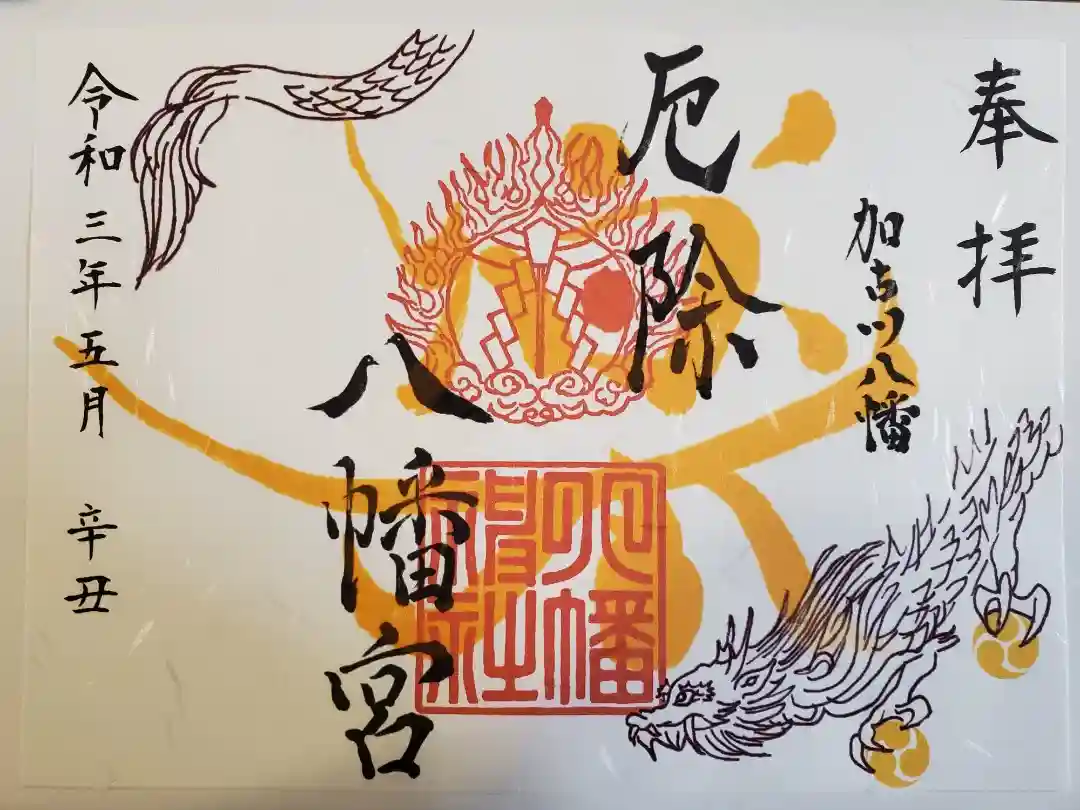 奉拝
加古川八幡
厄除
八幡宮
八幡
神社
令和三年五月 辛丑